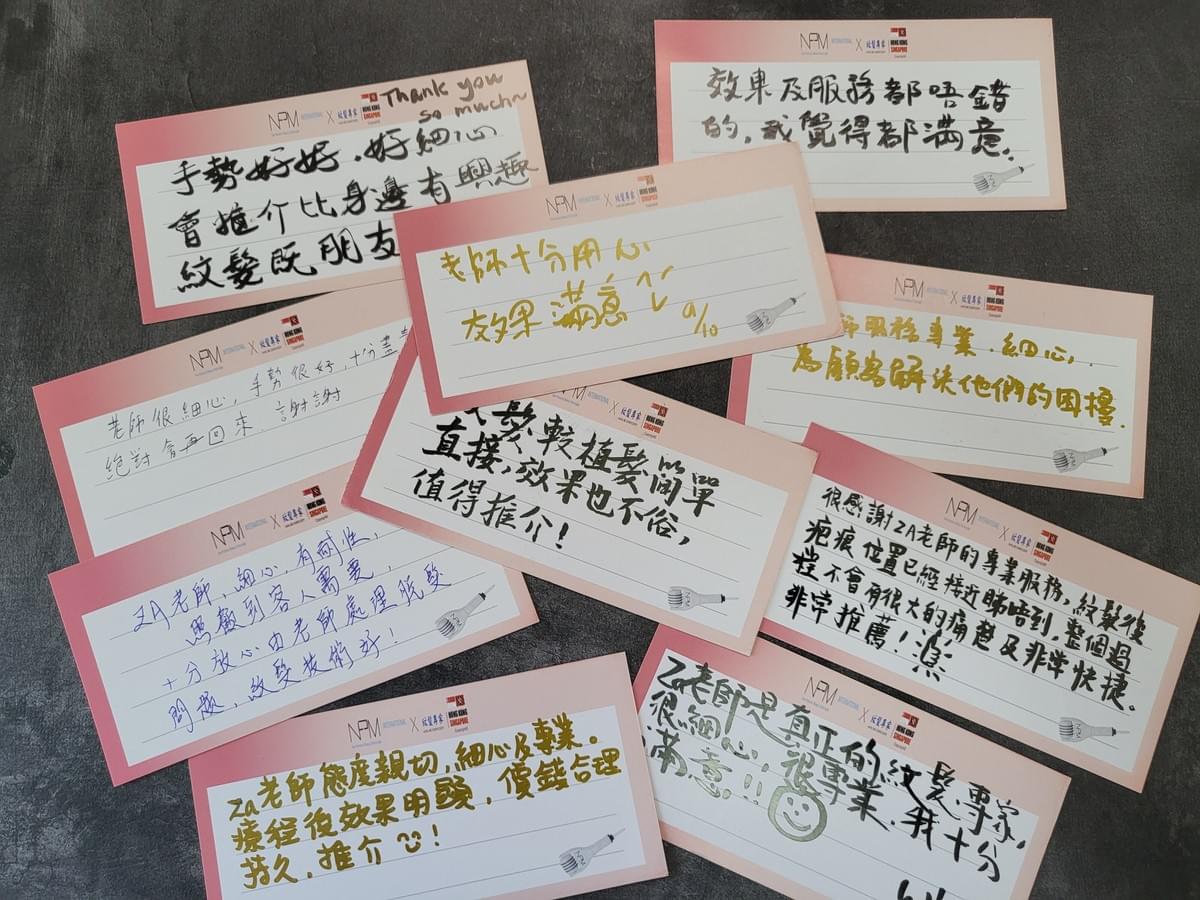 NPM INTERNATIONAL X 紋髮專家 HONG KONG SINGAPORE
Thank you
so much~
手勢好好、好細心
會推介比身邊有興趣
紋髮既朋友
NPM INTERNATIONAL X 紋髮專家 HONG KONG SINGAPORE
效果及服務都唔錯
的,我覺得都滿意.
NPM INTERNATIONAL X 紋髮專家 HONG KONG SINGAPORE
老師十分用心
效果滿意
9/10
NPM INTERNATIONAL X 紋髮專家 HONG KONG SINGAPORE
師服務專業、細心,
為顧客解決他們的困擾.
NPM INTERNATIONAL X 紋髮專家 HONG KONG SINGAPORE
老師很細心,手勢很好,十分盡
絕對會再回來、謝謝
INTERNATIONAL X 紋髮專家 HONG KONG SINGAPORE
髮較植髮簡單
直接,效果也不俗,
值得推介!
NPM INTERNATIONAL X 紋髮專家 HONG KONG SINGAPORE
很感謝ZA老師的專業服務,紋髮後
疤痕位置已經接近睇唔到,整個過
程不會有很大的痛楚及非常快捷.
非常推薦!
NPM INTERNATIONAL X 紋髮專家 HONG KONG SINGAPORE
ZA老師,細心、有耐性,
照顧到客人需要,
十分放心由老師處理脫髮
問題,紋髮技術好!
NPM INTERNATIONAL X 紋髮專家 HONG KONG SINGAPORE
Za老師態度親切,細心及專業。
療程後效果明顯,價錢合理
持久,推介!
NPM INTERNATIONAL X 紋髮專家 HONG KONG SINGAPORE
Za老師是真正的紋髮專家,
很細心!很專業,我十分
滿意!!